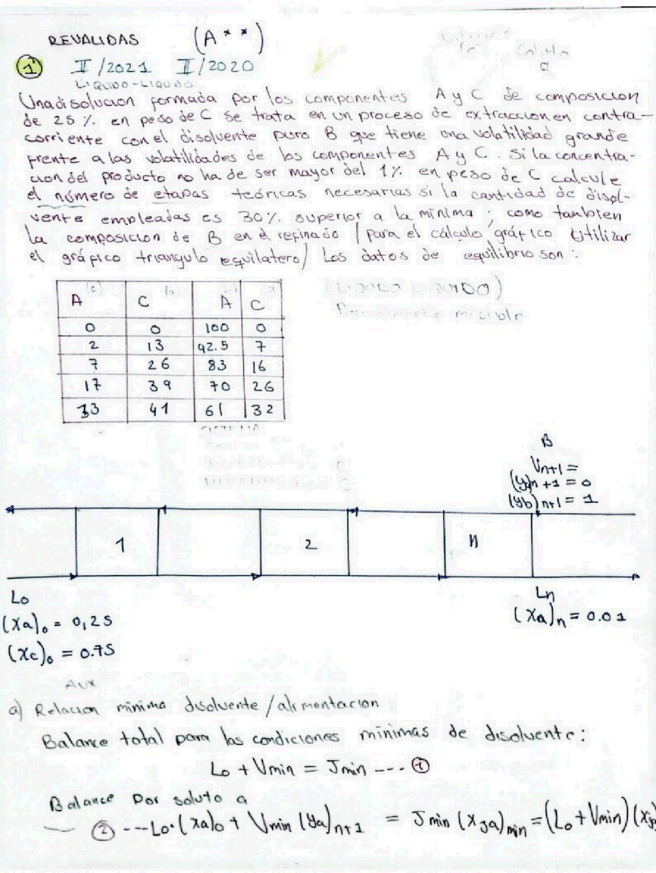 REVALIDAS (A**)
1 II/2021 II/2020
LIQUIDO-LIQUIDO
Una disolucion formada por los componentes A y C de composicion
de 25 %. en peso de C se trata en un proceso de extraccion en contra-
corriente con el disolvente puro B que tiene una volatilidad grande
frente a las volatilidades de los componentes A y C. Si la concentra-
cion del producto no ha de ser mayor del 1% en peso de C calcule
el número de etapas teóricas necesarias si la cantidad de disol-
vente empleadas es 30% superior a la mínima; como tambien
la composicion de B en el refinado (para el cálculo gráfico utilizar
el gráfico triangulo equilatero) Los datos de equilibrio son:
A C A C
0 0 100 0
2 13 92.5 7
7 26 83 16
17 39 70 26
33 41 61 32
B
Vn+1 =
(ya)n+1 = 0
(yb)n+1 = 1
1 2 n
Lo Ln
(xa)o = 0,25 (xa)n = 0.01
(xc)o = 0.75
Aux
a) Relacion minima disolvente/alimentacion
Balance total para las condiciones minimas de disolvente:
Lo + Vmin = Jmin ---- 1
Balance por soluto a
2 --- Lo·(xa)o + Vmin (ya)n+1 = Jmin (xja)min = (Lo + Vmin)